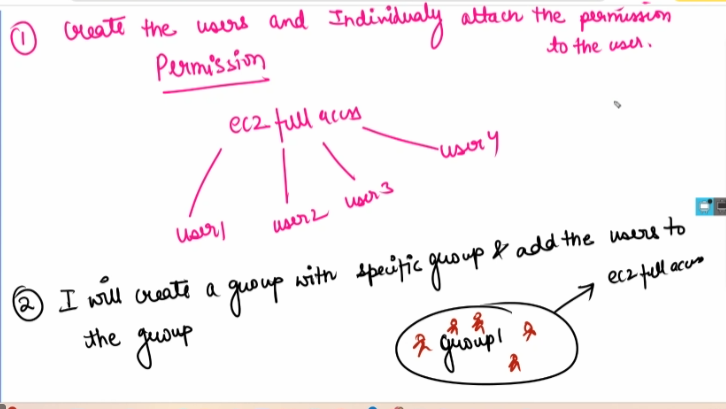 ① Create the users and Individualy attach the permission
to the user.
Permission
ec2 full access
user1 user2 user3 user4
② I will create a group with specific group & add the users to
the group
ec2 full access
group1